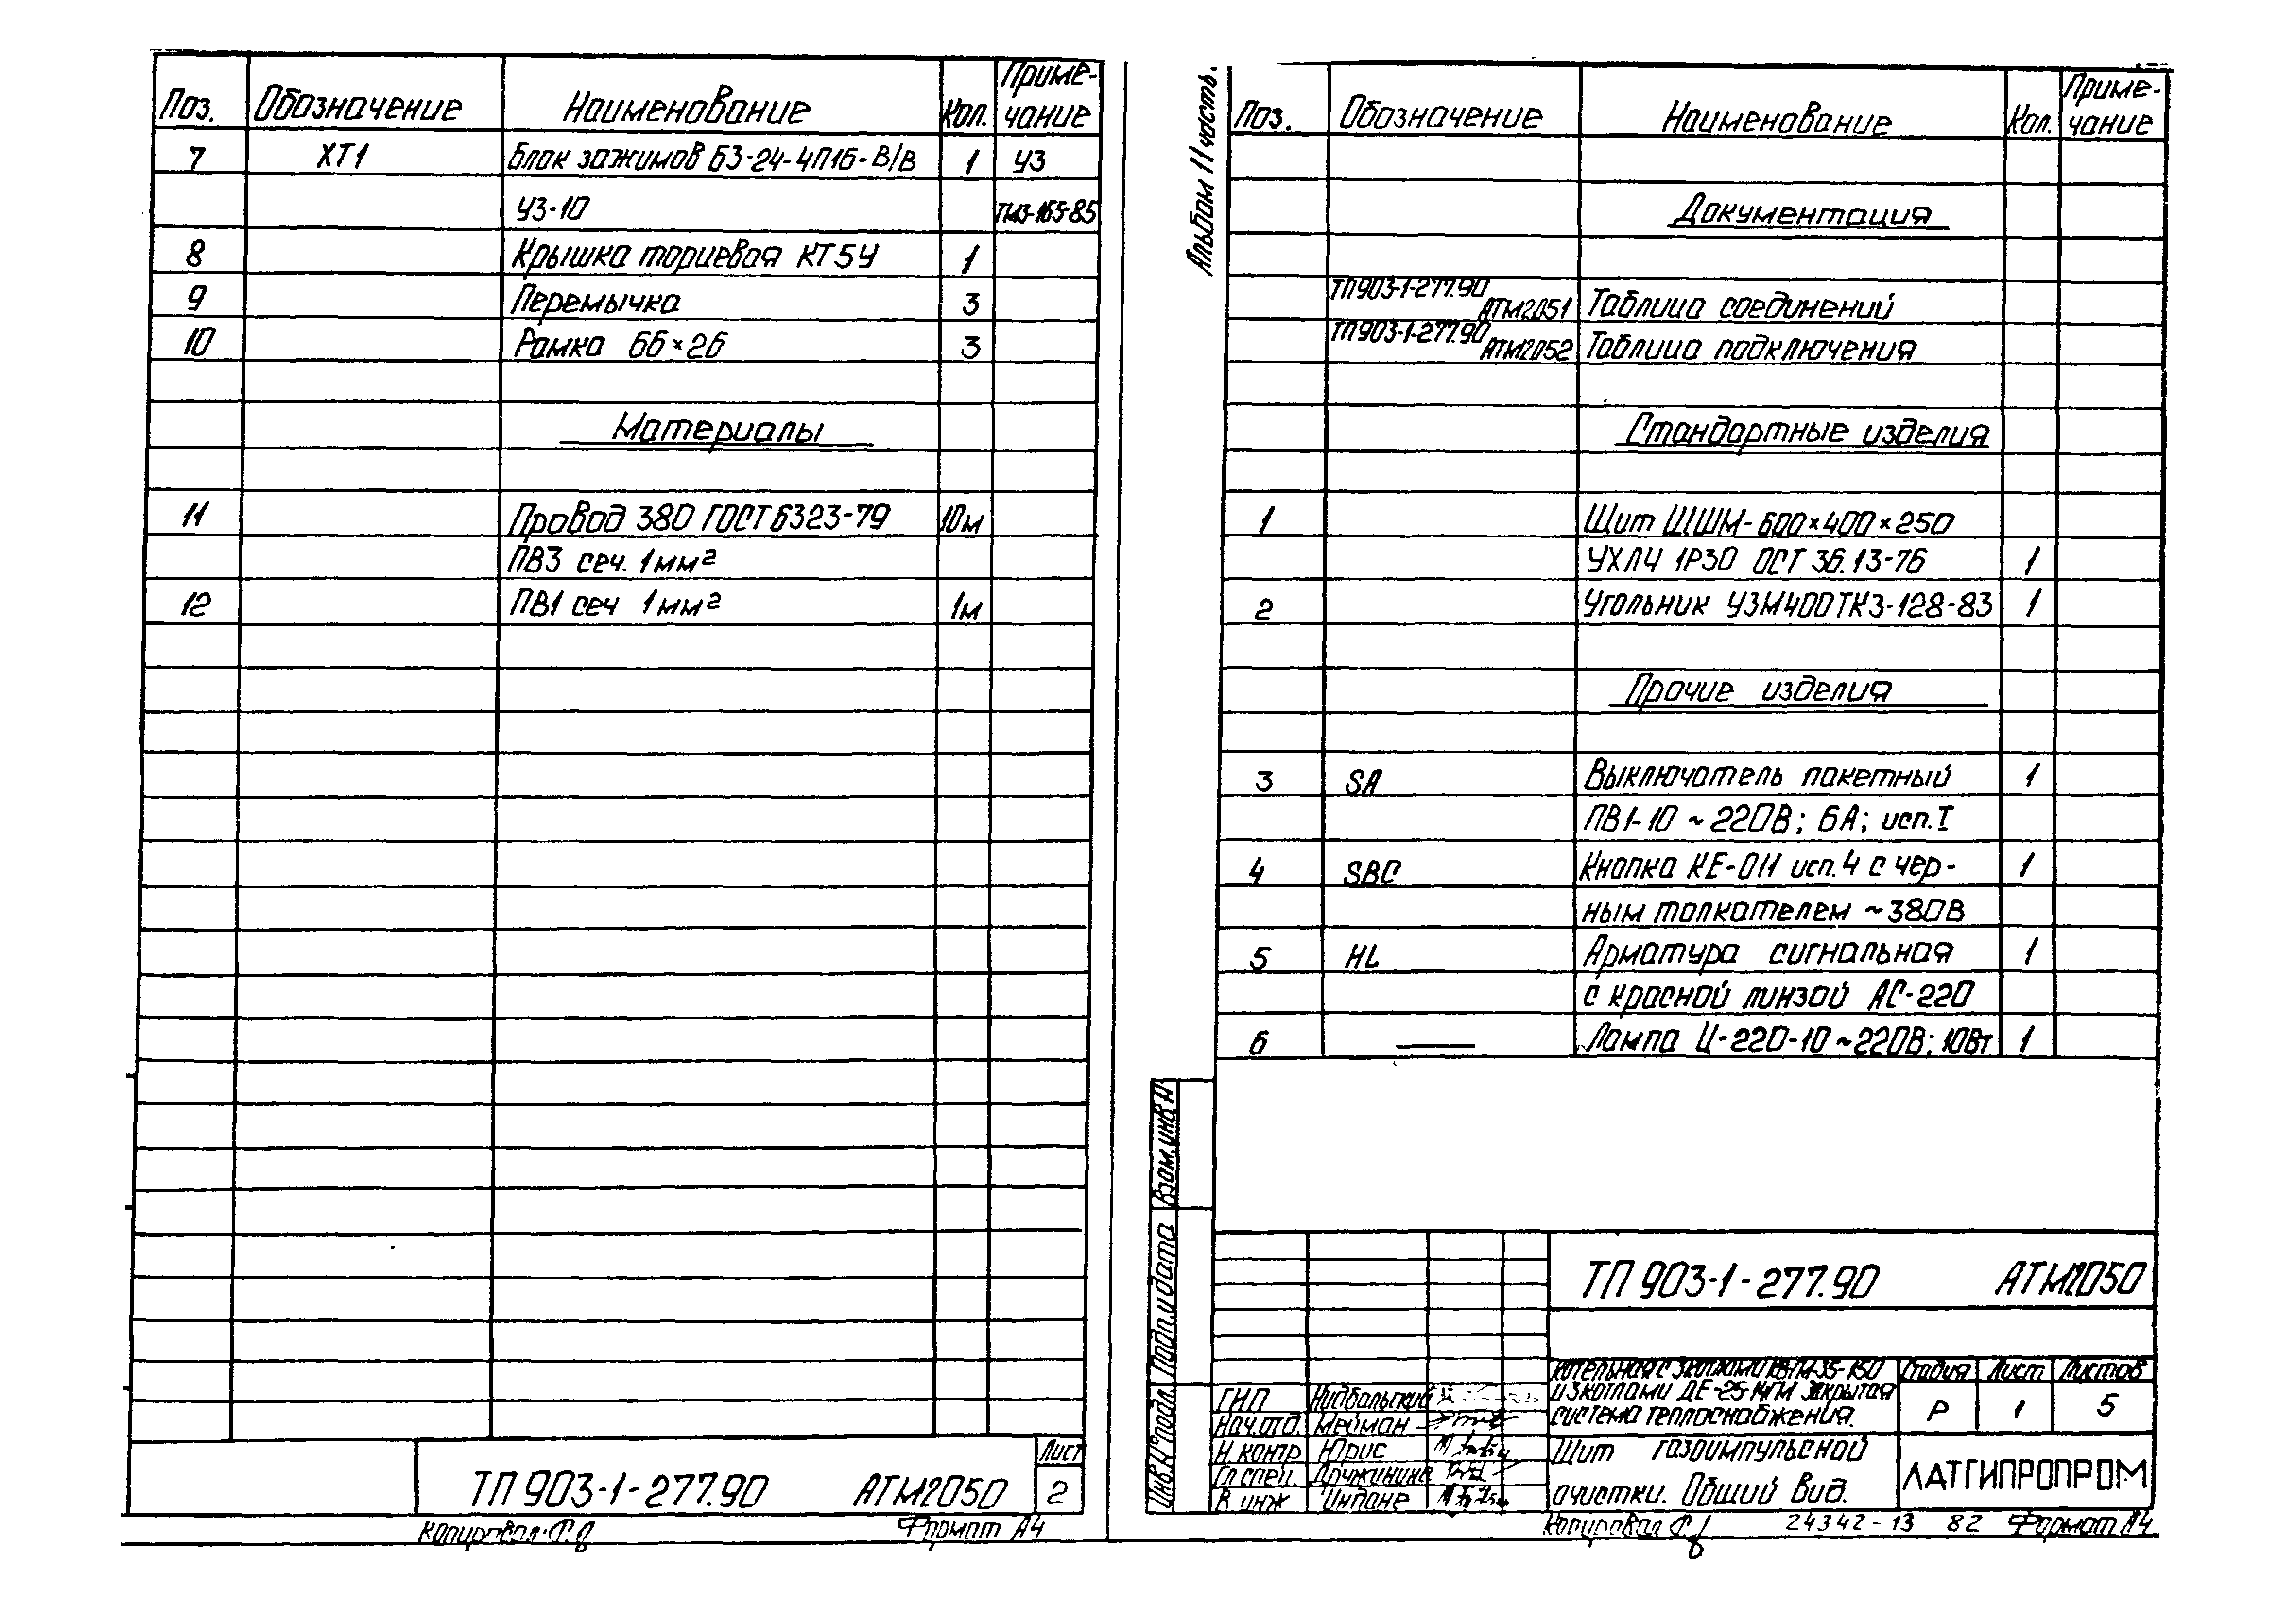 Поз. Обозначение Наименование Кол. Приме-
чание
7 ХТ1 Блок зажимов БЗ-24-4П16-В/В 1 УЗ
УЗ-10 ТМЗ-165-85
8 Крышка торцевая КТ5У 1
9 Перемычка 3
10 Рамка 66×26 3
Материалы
11 Провод 380 ГОСТ 6323-79 10м
ПВ3 сеч. 1мм²
12 ПВ1 сеч 1мм² 1м
ТП 903-1-277.90 АТМ2050
Лист
2
Копировал
Формат А4
Альбом 11 часть.
Поз. Обозначение Наименование Кол. Приме-
чание
Документация
ТП903-1-277.90
АТМ2051 Таблица соединений
ТП903-1-277.90
АТМ2052 Таблица подключения
Стандартные изделия
1 Щит ЩШМ-600×400×250
УХЛ4 1Р30 ОСТ 36.13-76 1
2 Угольник УЗМ400ТК3-128-83 1
Прочие изделия
3 SA Выключатель пакетный 1
ПВ1-10 ~220В; 6А; исп. I
4 SBC Кнопка КЕ-011 исп. 4 с чер- 1
ным толкателем ~380В
5 HL Арматура сигнальная 1
с красной линзой АС-220
6 — Лампа Ц-220-10 ~220В; 10Вт 1
Взам. инв. №
Подп. и дата
Инв. № подл.
ТП 903-1-277.90 АТМ2050
Котельная с
и 3 котлами ДЕ-25-14ГМ Закрытая
система теплоснабжения.
Стадия Лист Листов
Р 1 5
ГИП
Нач.отд. Мейман
Н.контр Юрис
Гл.спец. Дружинина
В инж Индане
Щит газоимпульсной
очистки. Общий вид.
ЛАТГИПРОПРОМ
Копировал
24342-13 82 Формат А4